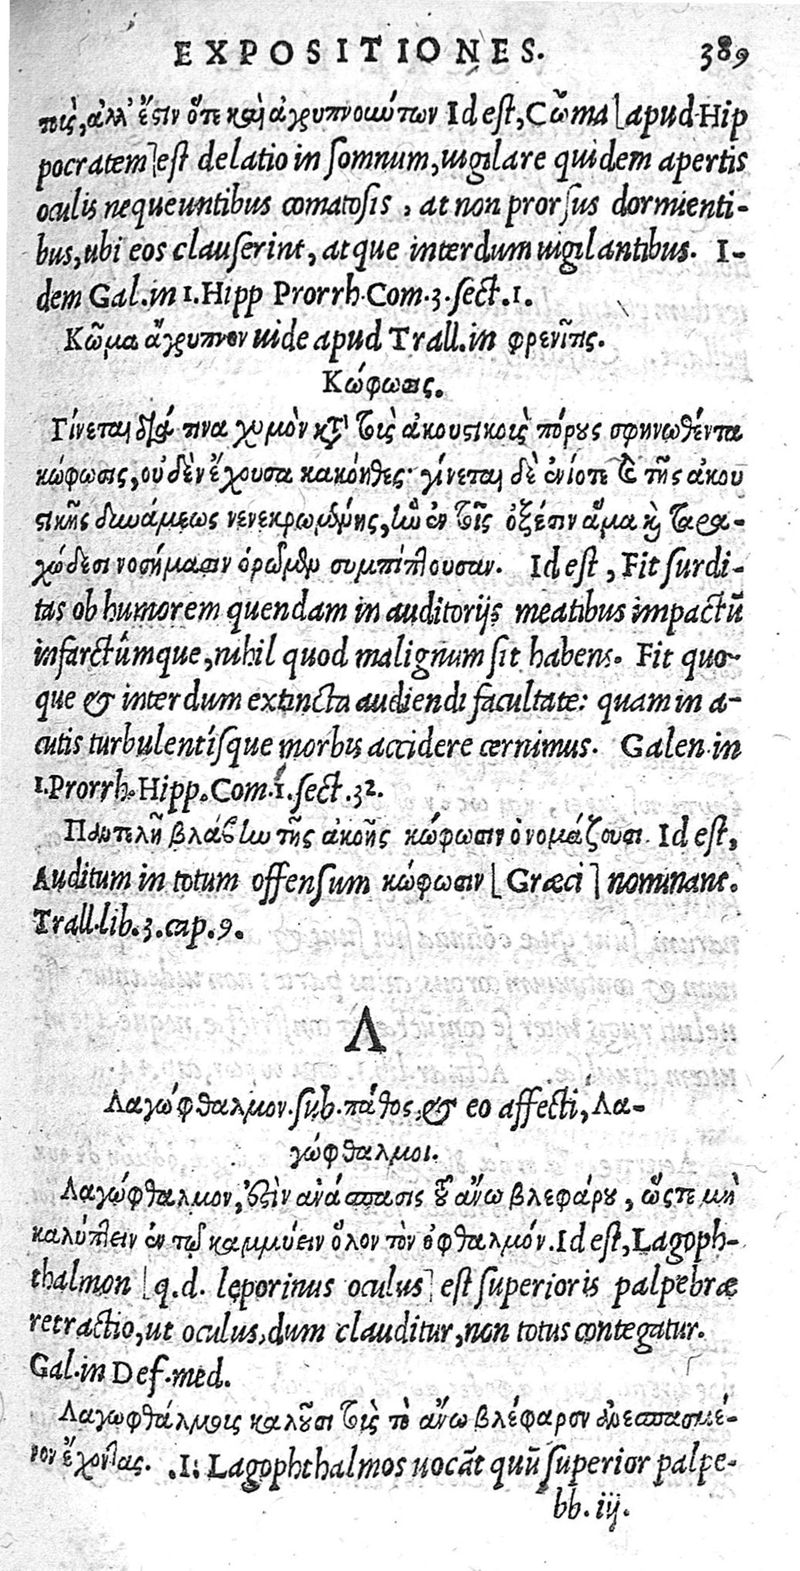 EXPOSITIONES. 389
ποις, ἀλλ' ἔστιν ὅτε καὶ ἀγρυπνούντων Id est, Cῶma [apud Hip
pocratem] est delatio in somnum, uigilare quidem apertis
oculis nequeuntibus comatosis, at non prorsus dormienti-
bus, ubi eos clauserint, atque interdum uigilantibus. I-
dem Gal. in 1. Hipp Prorrh. Com. 3. sect. 1.
Κῶμα ἄγρυπνον uide apud Trall. in φρενῖτις.
Κώφωσις.
Γίνεται διά τινα χυμὸν κατὰ τοὺς ἀκουστικοὺς πόρους σφηνωθέντα
κώφωσις, οὐδὲν ἔχουσα κακόηθες· γίνεται δὲ ἐνίοτε καὶ τῆς ἀκου
στικῆς δυνάμεως νενεκρωμένης, ἣν ἐν τοῖς ὀξέσιν ἅμα καὶ ταρα-
χώδεσι νοσήμασιν ὁρῶμεν συμπίπτουσαν. Id est, Fit surdi-
tas ob humorem quendam in auditorijs meatibus impactū
infarctúmque, nihil quod malignum sit habens. Fit quo-
que & interdum extincta audiendi facultate: quam in a-
cutis turbulentísque morbis accidere cernimus. Galen. in
1. Prorrh. Hipp. Com. 1. sect. 32.
Παντελῆ βλάβην τῆς ἀκοῆς κώφωσιν ὀνομάζουσι. Id est,
Auditum in totum offensum κώφωσιν [Græci] nominant.
Trall. lib. 3. cap. 9.
Λ
Λαγώφθαλμον. sub. πάθος, & eo affecti, Λα-
γώφθαλμοι.
Λαγώφθαλμον, ἐστὶν ἀνάσπασις τοῦ ἄνω βλεφάρου, ὥστε μὴ
καλύπτειν ἐν τῷ καμμύειν ὅλον τὸν ὀφθαλμόν. Id est, Lagoph-
thalmon [q.d. leporinus oculus] est superioris palpebræ
retractio, ut oculus, dum clauditur, non totus contegatur.
Gal. in Def. med.
Λαγωφθάλμους καλοῦσι τοὺς τὸ ἄνω βλέφαρον ἀνεσπασμέ-
νον ἔχοντας. .I: Lagophthalmos uocāt quū superior palpe-
bb. iij.